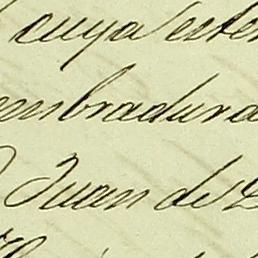 cuya este
embradura
Juan de